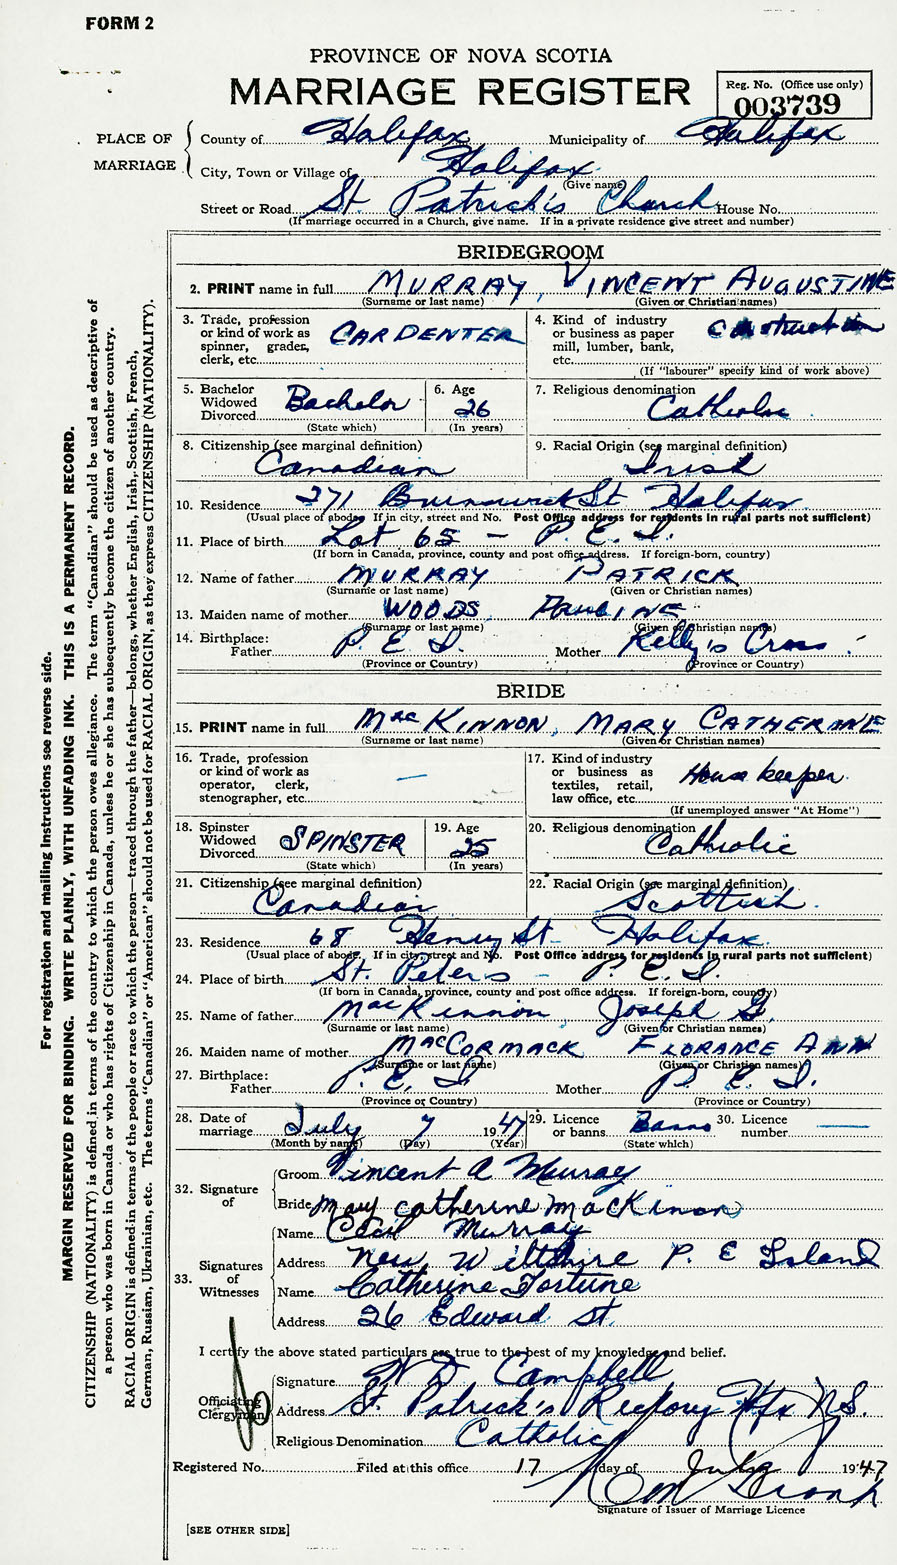 FORM 2
PROVINCE OF NOVA SCOTIA
MARRIAGE REGISTER
Reg. No. (Office use only)
003739
PLACE OF MARRIAGE
County of Halifax Municipality of Halifax
City, Town or Village of Halifax
(Give name)
Street or Road St. Patrick's Church House No.
(If marriage occurred in a Church, give name. If in a private residence give street and number)
BRIDEGROOM
2. PRINT name in full MURRAY, VINCENT AUGUSTINE
(Surname or last name) (Given or Christian names)
3. Trade, profession or kind of work as spinner, grader, clerk, etc. CARPENTER
4. Kind of industry or business as paper mill, lumber, bank, etc. Construction
(If "labourer" specify kind of work above)
5. Bachelor Widowed Divorced Bachelor
(State which)
6. Age 26
(In years)
7. Religious denomination Catholic
8. Citizenship (see marginal definition) Canadian
9. Racial Origin (see marginal definition) Irish
10. Residence 271 Brunswick St Halifax
(Usual place of abode. If in city, street and No. Post Office address for residents in rural parts not sufficient)
11. Place of birth Lot 65 - P. E. I.
(If born in Canada, province, county and post office address. If foreign-born, country)
12. Name of father MURRAY PATRICK
(Surname or last name) (Given or Christian names)
13. Maiden name of mother WOODS PAULINE
(Surname or last name) (Given or Christian names)
14. Birthplace: Father P. E. I. Mother Kelly's Cross
(Province or Country) (Province or Country)
BRIDE
15. PRINT name in full MacKINNON, MARY CATHERINE
(Surname or last name) (Given or Christian names)
16. Trade, profession or kind of work as operator, clerk, stenographer, etc. —
17. Kind of industry or business as textiles, retail, law office, etc. House keeper
(If unemployed answer "At Home")
18. Spinster Widowed Divorced SPINSTER
(State which)
19. Age 25
(In years)
20. Religious denomination Catholic
21. Citizenship (see marginal definition) Canadian
22. Racial Origin (see marginal definition) Scottish
23. Residence 68 Henry St- Halifax
(Usual place of abode. If in city, street and No. Post Office address for residents in rural parts not sufficient)
24. Place of birth St. Peters - P. E. I.
(If born in Canada, province, county and post office address. If foreign-born, country)
25. Name of father MacKinnon Joseph
(Surname or last name) (Given or Christian names)
26. Maiden name of mother MacCORMACK FLORANCE ANN
(Surname or last name) (Given or Christian names)
27. Birthplace: Father P. E. I. Mother P. E. I.
(Province or Country) (Province or Country)
28. Date of marriage July 7 1947
(Month by name) (Day) (Year)
29. Licence or banns Banns
(State which)
30. Licence number —
32. Signature of
Groom Vincent A Murray
Bride Mary Catherine MacKinnon
33. Signatures of Witnesses
Name Cecil Murray
Address New Wiltshire P. E Island
Name Catherine Fortune
Address 26 Edward St.
I certify the above stated particulars are true to the best of my knowledge and belief.
Officiating Clergyman
Signature Campbell
Address St. Patrick's Rectory Hfx N.S.
Religious Denomination Catholic
Registered No. Filed at this office 17 day of July 1947
Signature of Issuer of Marriage Licence
[SEE OTHER SIDE]
For registration and mailing instructions see reverse side.
MARGIN RESERVED FOR BINDING. WRITE PLAINLY, WITH UNFADING INK. THIS IS A PERMANENT RECORD.
CITIZENSHIP (NATIONALITY) is defined in terms of the country to which the person owes allegiance. The term "Canadian" should be used as descriptive of
a person who was born in Canada or who has rights of Citizenship in Canada, unless he or she has subsequently become the citizen of another country.
RACIAL ORIGIN is defined in terms of the people or race to which the person—traced through the father—belongs, whether English, Irish, Scottish, French,
German, Russian, Ukrainian, etc. The terms "Canadian" or "American" should not be used for RACIAL ORIGIN, as they express CITIZENSHIP (NATIONALITY).